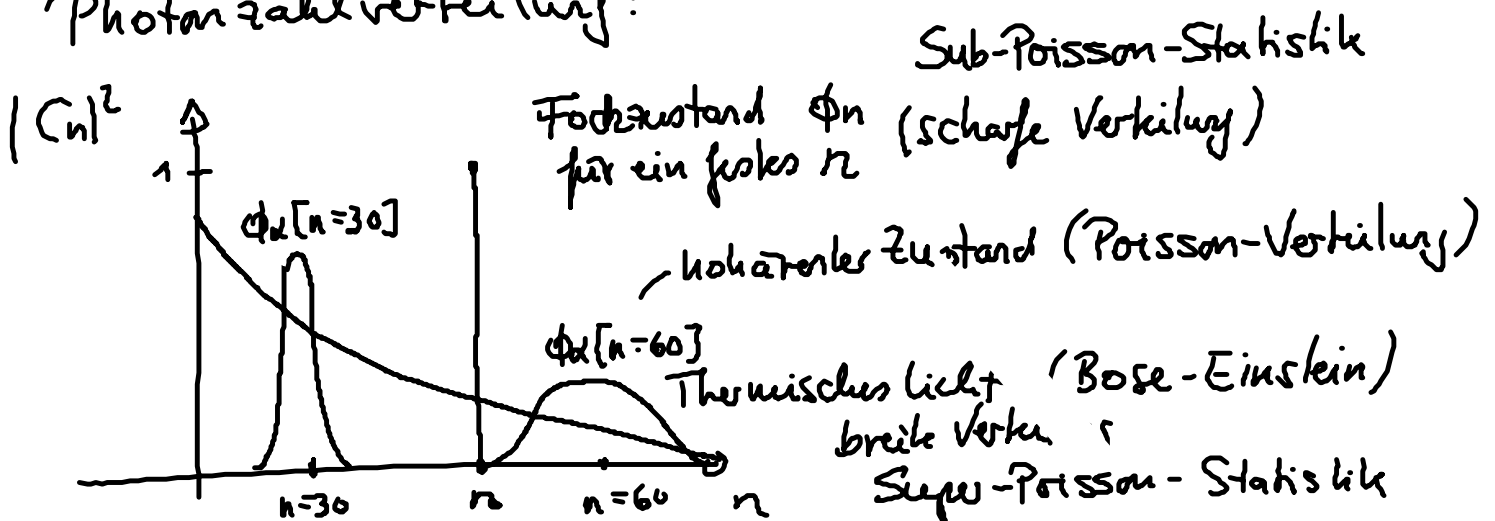 Photonzahlverteilung:
Sub-Poisson-Statistik
|Cn|²
Fockzustand ϕn (scharfe Verteilung)
1
für ein festes n
ϕα[n=30]
kohärenter Zustand (Poisson-Verteilung)
ϕα[n=60]
Thermisches Licht (Bose-Einstein)
breite
Super-Poisson-Statistik
n=30 n n=60 n